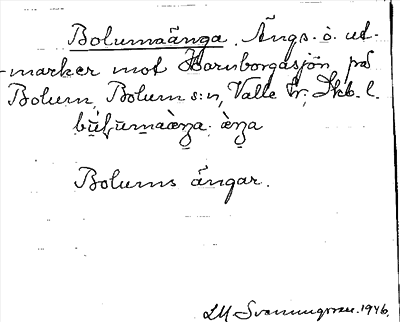 Bolumaänga. Ängs- o. ut-
marker mot Hornborgasjön på
Bolum, Bolum s:n, Valle hr; Skb. l.
Bolums ängar.
LM Svenungsson. 1946.